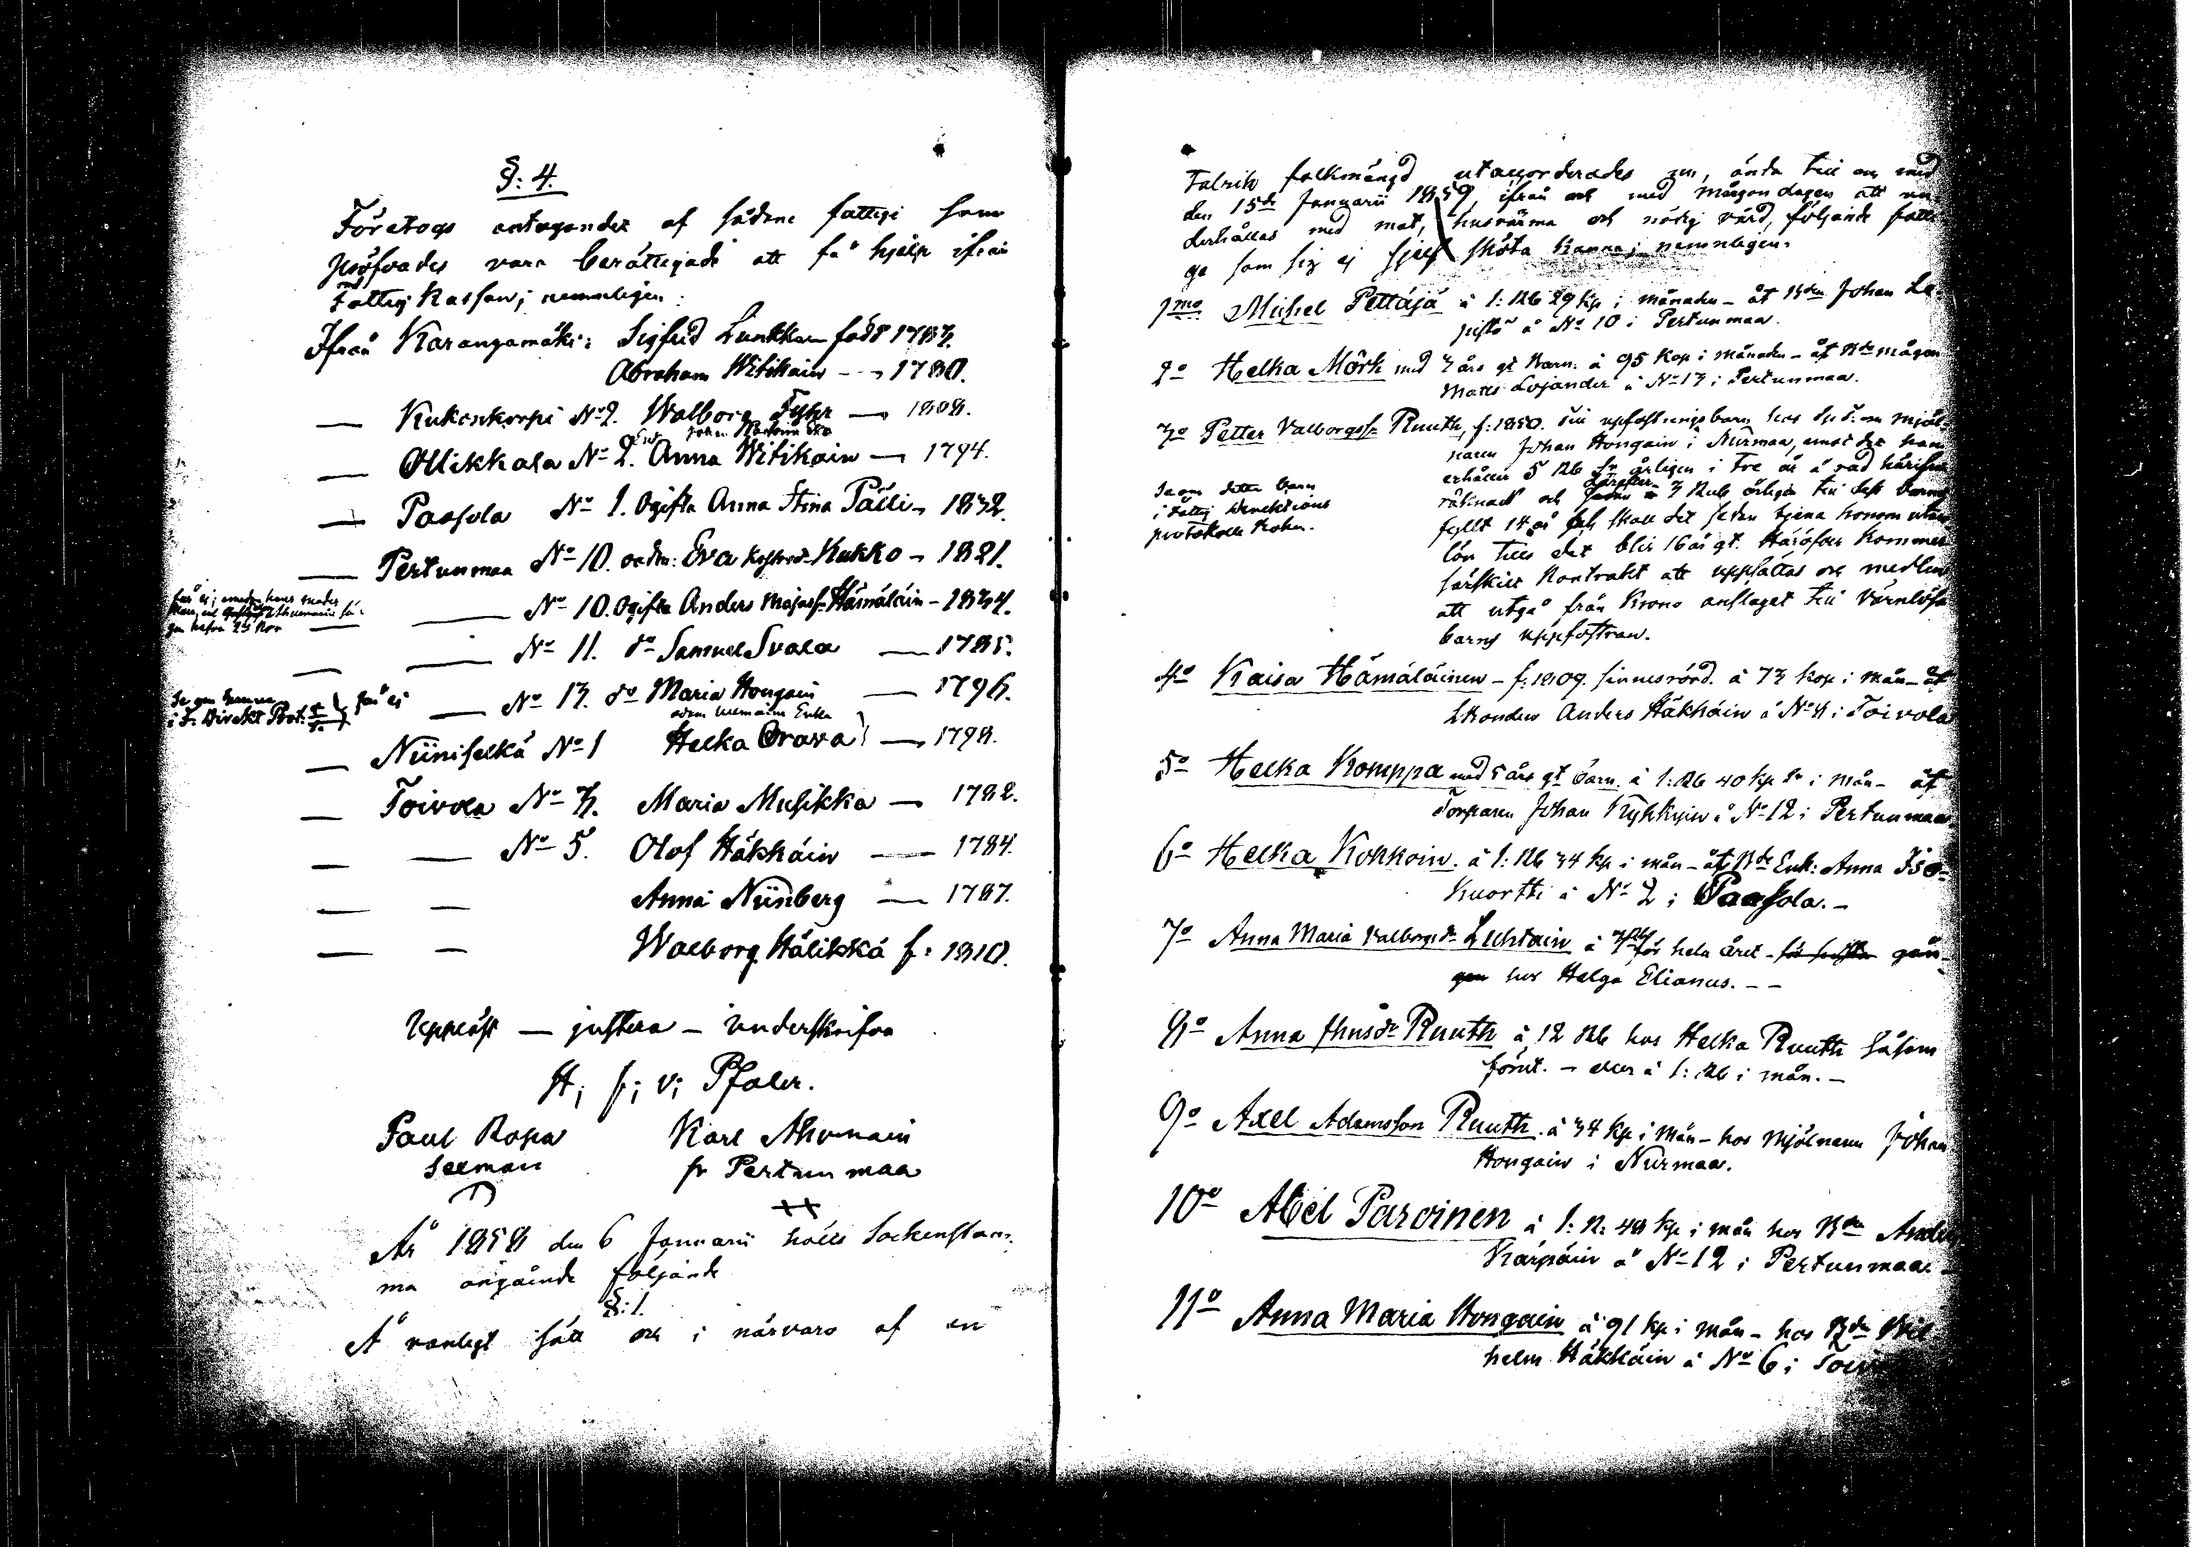 §: 4.
Företogs antagandet af sådane fattige som
pröfvades vara berättigade att få hjelp ifrån
Fattig Kassan; nemnligen:
Ifrån Karangamäki: Sigfrid Lunkka född 1787.
Abraham Witikain — 1780.
— Kukonkorpi No 2. Walborg Fyhr — 1808.
— Ollikkala No 2. Anna Witikain — 1794.
— Paasola No 1. Ogifta Anna Stina Pälli — 1832.
— Pertunmaa No 10. Eva Kukko — 1821.
— No 10. Ogifta Anders Majass: Hämäläin — 1834.
— — No 11. do Samuel Svala — 1785.
få ej — No 13. do Maria Hongain — 1796.
— Niiniselkä No 1 Helka Orava — 1798.
— Toivola No 3. Maria Musikka — 1782.
— — No 5. Olof Häkkäin — 1784.
— — Anna Niinberg — 1787.
— — Walborg Hälikkä f: 1810.
Uppläst — justera — underskrifva
H; f; v; Pfaler.
Paul Ropa Karl Ahvenain
Seeman fr Pertunmaa
År 1858 den 6 Januarii hölls Sockenstäm-
ma angående följande
§: 1.
Å vanligt sätt och i närvaro af en
Talrik folkmängd utackorderades nu, ända till och med
den 15de Januarii 1859, ifrån och med morgondagen att un-
derhållas med mat, husvärma och nödig vård, följande fatti-
ge som sig ej sjelf sköta kunna; nemnligen.
1mo Michel Pettäjä à 1: Rb 29 kp i månaden — åt Bden Johan Le-
pistö å No 10 i Pertunmaa.
2o Helka Mörk med 3 års gt barn à 95 kop i månaden — åt Bde mågen
Matts Lojander å No 13 i Pertunmaa.
3o Petter Valborgss: Ruuth, f: 1850. till uppfostringsbarn hos mjöl-
naren Johan Hongain i Nurmaa, emot det han
erhåller 5 Rb Sr årligen i tre år å rad härifrån
räknadt och därefter 3 Rub årligen till dess barnet
fyllt 14 år skall det sedan tjena honom utan
lön tills det blir 16 år gt. Häröfver kommer
särskilt Kontrakt att uppsättas och medlen
att utgå från Krono anslaget till Värnlösa
barns uppfostran.
Se om detta barn
i Fattig Direktions
protokolls boken.
4o Kaisa Hämäläinen — f: 1809. sinnesrörd. à 73 kop i mån — åt
Bonden Anders Häkkäin å No 4 i Toivola
5o Helka Komppa med 5 års gt barn. à 1: Rb 40 kp Sr i mån — åt
Torparen Johan Kyhkyin å No 12 i Pertunmaa
6o Helka Kokkoin. à 1: Rb 34 kp i mån — åt Bde Enk: Anna Iso-
Kuortti å No 2 i Paasola. —
7o Anna Maria Valborgsdr Luhtain à 3 Rb för hela året — gån-
gen hos Helga Elianus. — —
8o Anna Jhnsdr Ruuth à 12 Rb hos Helka Ruuth såsom
förut. — eller à 1: Rb i mån. —
9o Axel Adamsson Ruuth. à 34 kp i mån — hos mjölnaren Johan
Hongain i Nurmaa.
10o Abel Parvinen à 1: R: 48 kp i mån hos Bden Anders
Kärpäin å No 12 i Pertunmaa. —
11o Anna Maria Hongain à 91 kp i mån — hos Bden Wil
helm Häkkäin å No 6 i